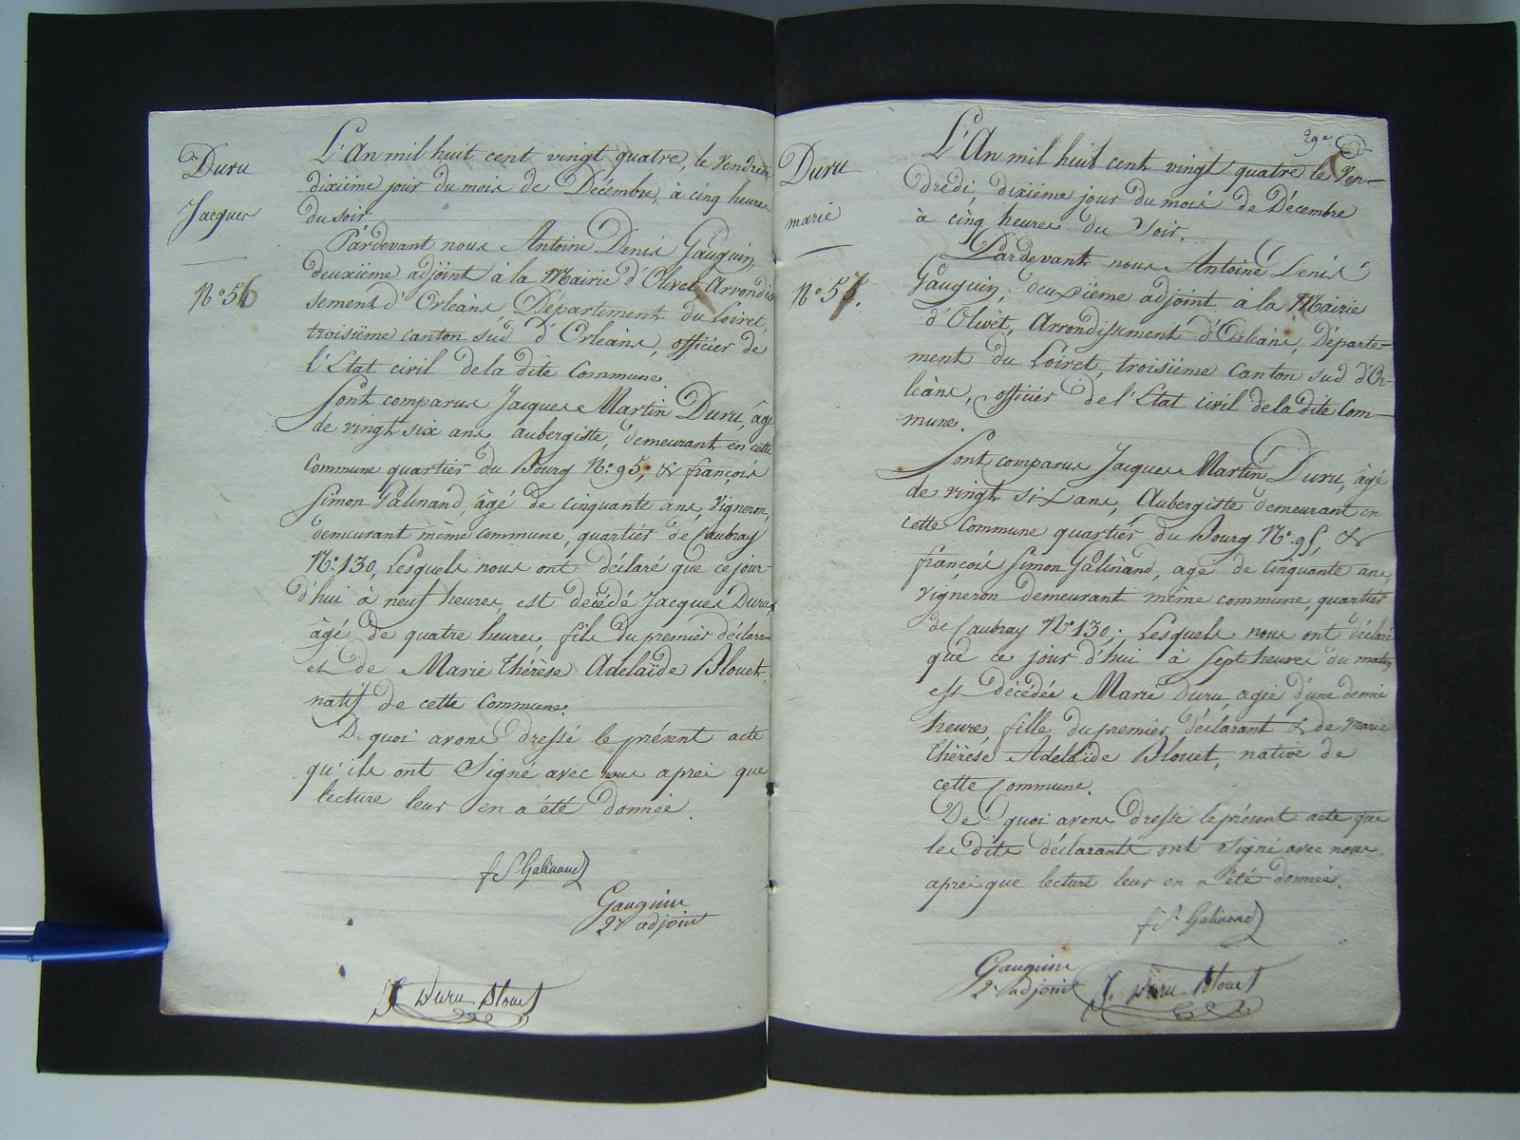 Duru
Jacques
N° 56
L'An mil huit cent vingt quatre, le Vendredi
dixième jour du mois de Décembre, à cinq heures
du soir
Pardevant nous Antoine Denis Gauguin,
deuxième adjoint à la Mairie d'Olivet Arrondis
sement d'Orléans, Département du Loiret,
troisième canton sud d'Orléans, officier de
l'Etat civil de la dite Commune.
Sont comparus Jacques Martin Duru, âgé
de vingt six ans, aubergiste, demeurant en cette
Commune quartier du Bourg N° 95, & françois
Simon Galinand, âgé de cinquante ans, Vigneron,
demeurant même commune, quartier de Caubray
N° 130, Lesquels nous ont déclaré que ce jour-
d'hui à neuf heures, est décédé Jacques Duru,
âgé de quatre heures, fils du premier déclarant
et de Marie thérèse Adelaïde Blouet,
natif de cette Commune.
De quoi avons dressé le présent acte
qu'ils ont Signé avec nous après que
lecture leur en a été donnée.
f S. Galinand
Gauguin
2e adjoint
J Duru Blouet
29e
Duru
marie
N° 57.
L'An mil huit cent vingt quatre le Ven-
dredi, dixième jour du mois de Décembre
à cinq heures du Soir.
Pardevant nous Antoine Denis
Gauguin, deuxième adjoint à la Mairie
d'Olivet, Arrondissement d'Orléans, Départe-
ment du Loiret, troisième Canton sud d'Or-
léans, officier de l'Etat civil de la dite Com-
mune.
Sont comparus Jacques Martin Duru, âgé
de vingt six ans, Aubergiste demeurant en
cette Commune quartier du Bourg N° 95, &
françois Simon Galinand, âgé de Cinquante ans,
vigneron demeurant même commune, quartier
de Caubray N° 130; Lesquels nous ont déclaré
que ce jour d'hui à Sept heures du matin
est décédée Marie Duru, agée d'une demie
heure, fille du premier déclarant & de Marie
thérèse Adelaïde Blouet, native de
cette Commune.
De quoi avons dressé le présent acte que
les dits déclarants ont Signé avec nous
après que lecture leur en a été donnée.
f S. Galinand
Gauguin
2e adjoint
J. Duru Blouet